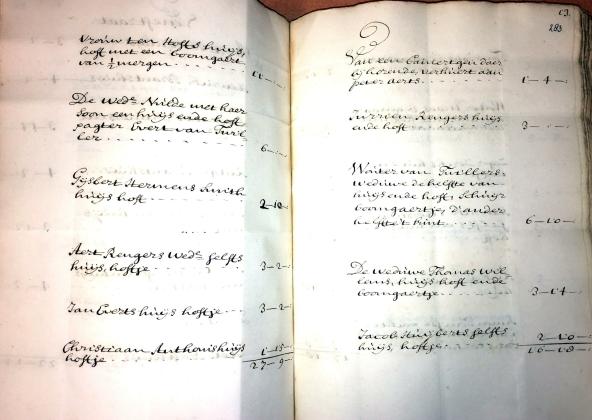 vrouw ten Hofts huijs,
hoft met een boomgaert
van ½ mergen
De Wed.e Nuilde met haer
soon een huijs ende hoft
pagter Evert van Tuil-
ler 6-"-
Gijsbert Hermens Smith
huijs hoft 2-10-
Aert Rengers Wed.e selfs
huijs, hoftje 3-2-
Jan Everts huijs hoftje 3-2-
Christiaan Anthonis huijs
hoftje 1-15-
27-9-
C3.
283
Van een Camertgen daer
bij horende, verhuert aan
peter aerts 1-4-
Jurrien Rengers huijs
ende hoft 3-
Wouter van Tuillers
weduwe de helfte van
huijs ende hoft, schuijr
boomgaertje, d'ander
helfte 't kint 6-10-
De weduwe Thomas Wil-
lems, huijs hoft ende
boomgaertje 3-14-
Jacob Huijberts selfs
huijs, hoftje 2-10-
16-18-